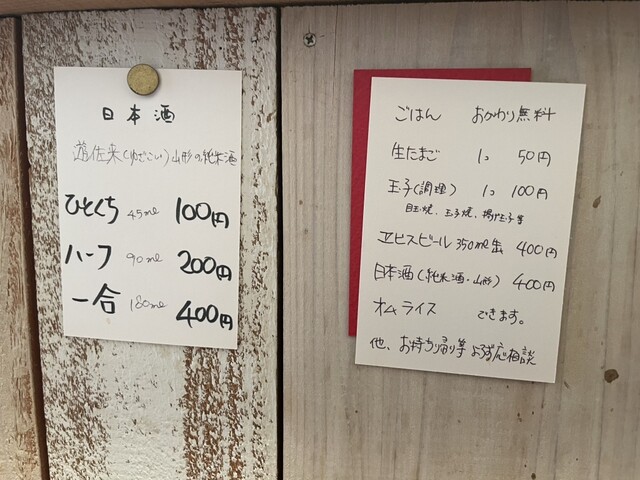 日本酒
遊佐来(ゆざこい)山形の純米酒
ひとくち 45ml 100円
ハーフ 90ml 200円
一合 180ml 400円
ごはん おかわり無料
生たまご 1コ 50円
玉子(調理) 1コ 100円
目玉焼、玉子焼、揚げ玉子等
ヱビスビール 350ml缶 400円
日本酒(純米酒・山形) 400円
オムライス できます。
他、お持ち帰り等 よろず応相談